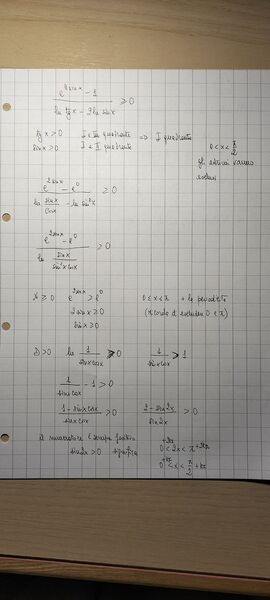 e^(2 sin x) - 1 / (ln tg x - 2 ln sin x) ≥ 0
tg x > 0 I e III quadrante ⇒ I quadrante
sin x > 0 I e II quadrante 0 < x < π/2
gli estremi vanno
esclusi
e^(2 sin x) - e^0 / (ln (sin x / cos x) - ln sin²x) ≥ 0
e^(2 sin x) - e^0 / (ln (sin x / (sin²x cos x))) ≥ 0
N ≥ 0 e^(2 sin x) ≥ e^0 0 ≤ x ≤ π + la periodicità
2 sin x ≥ 0 (ricorda di escludere 0 e π)
sin x ≥ 0
D > 0 ln (1 / (sin x cos x)) > 0 1 / (sin x cos x) > 1
1 / (sin x cos x) - 1 > 0
(1 - sin x cos x) / (sin x cos x) > 0 (2 - sin 2x) / (sin 2x) > 0
il numeratore è sempre positivo
sin 2x > 0 significa 0 +2kπ < 2x < π +2kπ
0 +kπ < x < π/2 + kπ